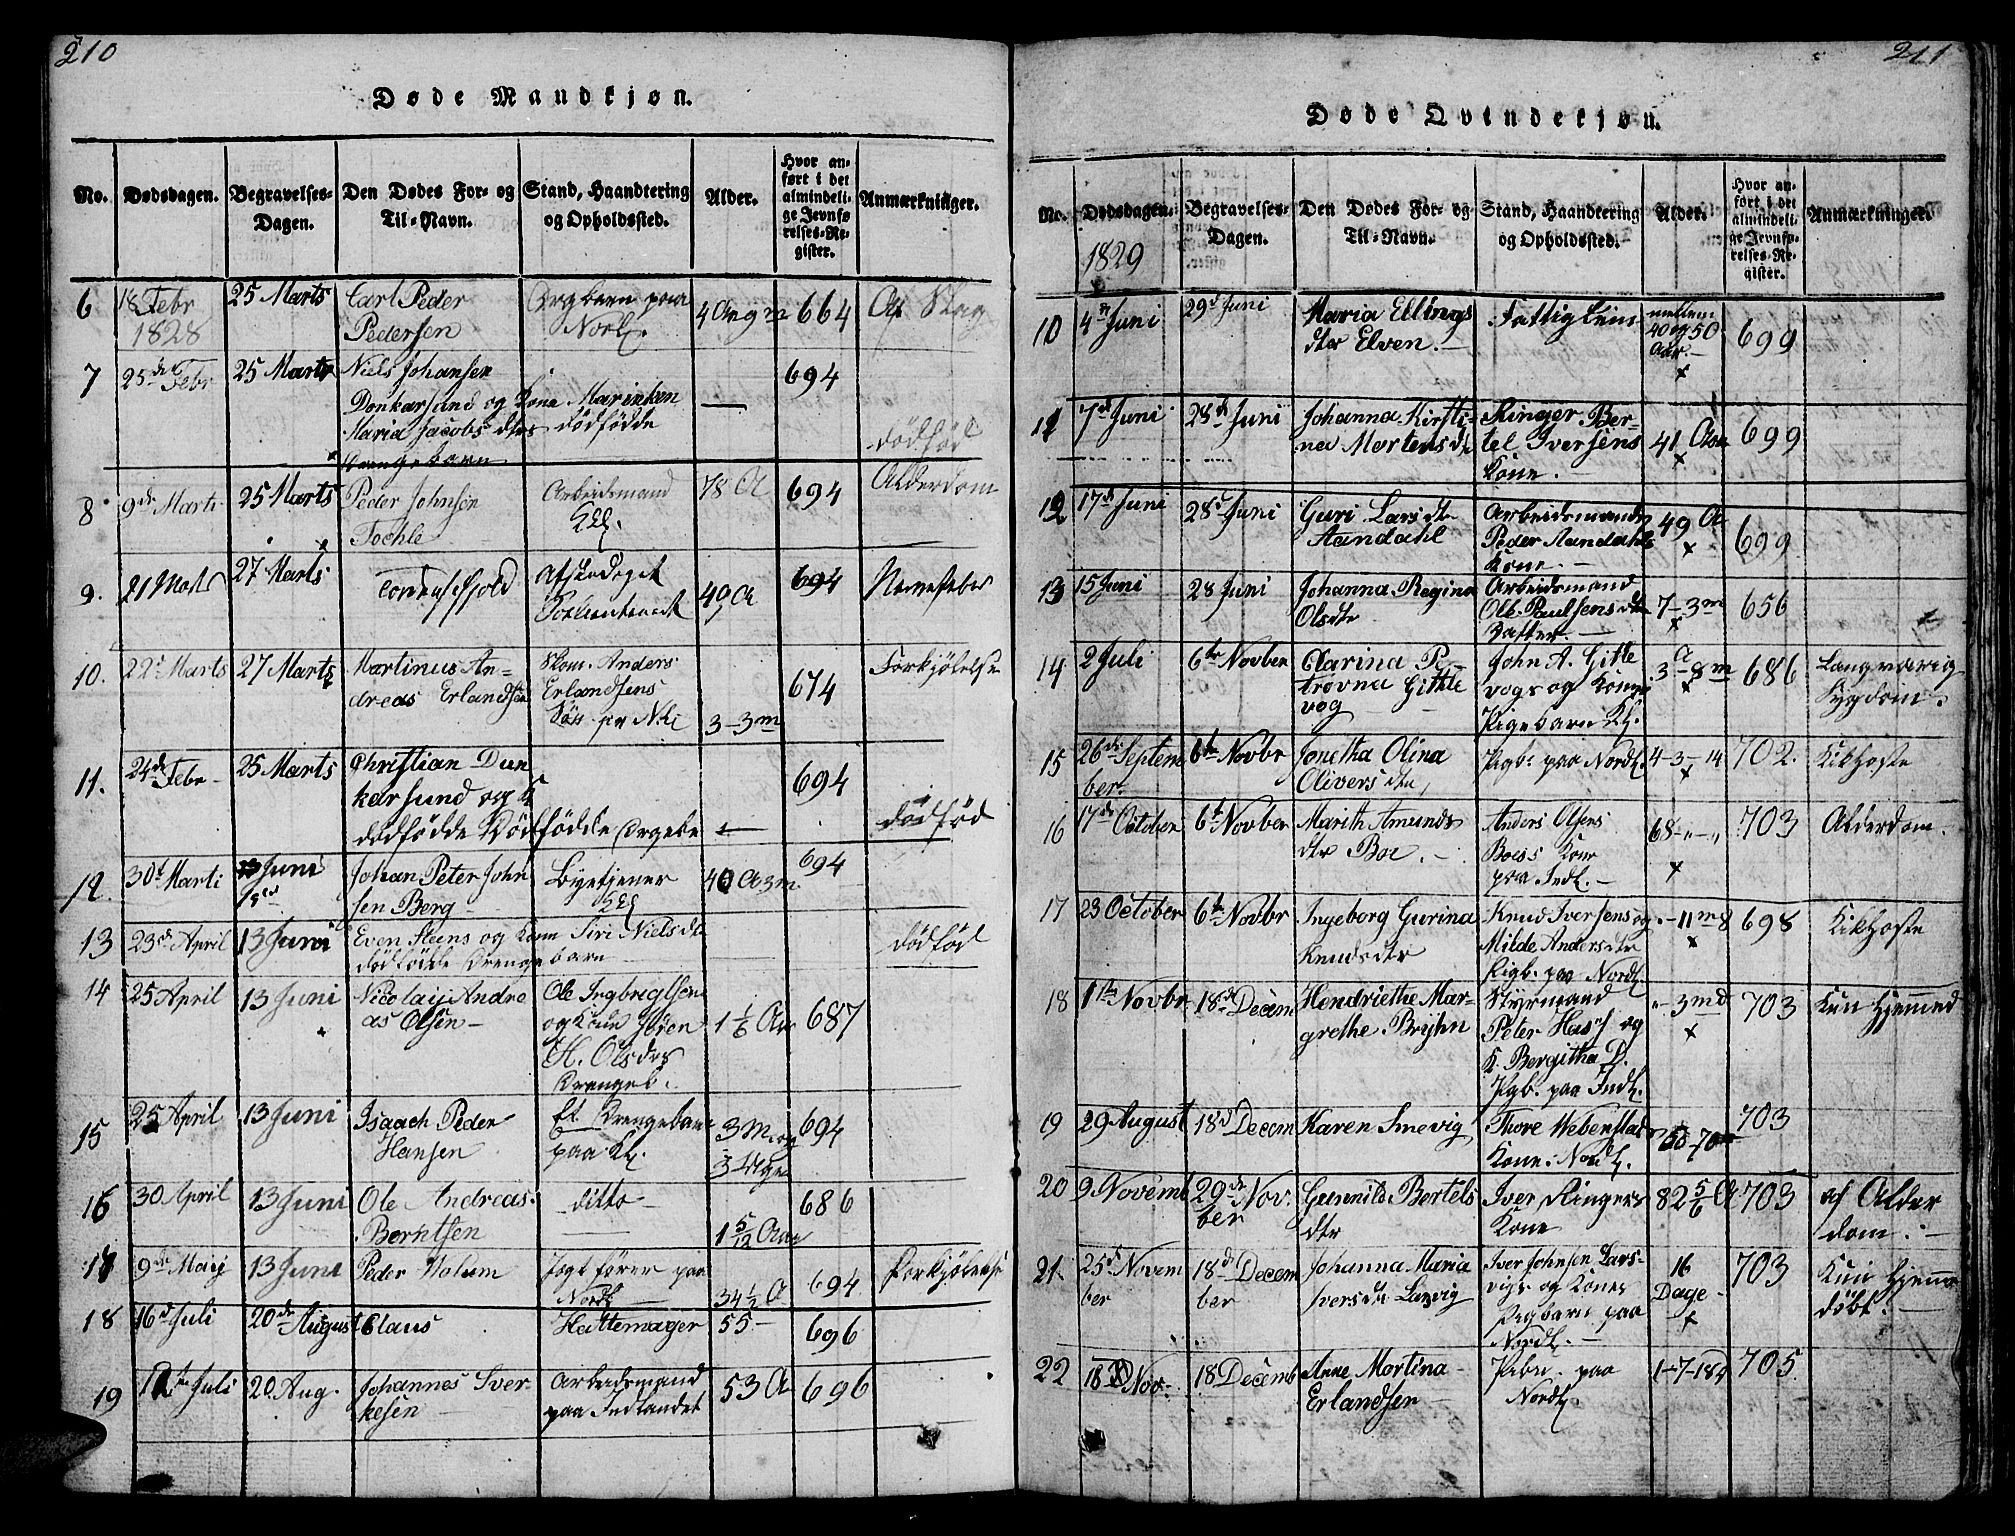 210
Døde Mandkjøn.
No. Dødsdagen. Begravelses-Dagen. Den Dødes For- og Til-Navn. Stand, Haandtering og Opholdssted. Alder. Hvor anført i det almindelige Jevnførelses-Register. Anmærkninger.
6 18 Febr 1828 25 Marts Carl Peder Pedersen Drgbarn paa Nordl. 664 Af Slag
7 25de Febr 25 Marts Niels Johansen 694
Dunkarsund og Kone Marinken
Maria Jacobsdtrs dödfödde dödfød
Drengebarn
8 9de Marti 25 Marts Peder Johnsen Arbeidsmand 78 A 694 Alderdom
9. 21 Marts 27 Marts Tordenschjold Afskediget 49 A 694 Nervefeber
10. 22 Marts 27 Marts Martinus Andreas Erlandsen Skom. Anders Erlandsens Sön 3-3m 674 Forkjölelse
11. 24de Febr 25 Marts Christian Dunkarsund og K 694
dödfödde Dödfödde dödfød
12. 30t Marti Juni Johan Peter Johnsen Berg 40 A 3m 694
13 23de April 13 Juni Even Steens og Kone Siri Nielsdtr dödfød
dödfödde Drengebarn
14 25 April 13 Juni Nicolaij Andreas Olsen Ole Ingbrigtsen og Kone H. Olsdtrs Drengeb. 1 1/6 Aar 687
15 25 April 13 Juni Isaach Peder Hansen Et Drengebarn paa Kl. 3 M og 3 Uger 694
16 30 April 13 Juni Ole Andreas Berntsen ditto 1 5/12 Aar 686
17 9de Maij 13 Juni Peder Holum Jagtfører paa Nordl 34 1/2 A 694 Forkjölelse
18 16d Juli 20de August Claus Hattemager 55 696
19 12te Juli 20 Aug. Johannes Iverkesen Arbeidsmand paa Indlandet 53 A 696
211
Døde Qvindekjøn.
No. Dødsdagen. Begravelses-Dagen. Den Dødes For- og Til-Navn. Stand, Haandtering og Opholdssted. Alder. Hvor anført i det almindelige Jevnførelses-Register. Anmærkninger.
1829
10 4 Juni 29d Juni Maria Ellingsdtr Elven. Fattiglem mellem 40 og 50 Aar 699
11 7d Juni 28d Juni Johanna Kirstinea Mortensd Ringer Bertel Iversens Kone 41 Aar 699
12 17d Juni 28d Juni Guri Larsdtr Aandahl Arbeidsmands Peder Aandahls Kone. 49 A 699
13 15 Juni 28 Juni Johanna Regina Olsdtr Arbeidsmand Ole Paulsens Datter 7-3m 656
14 2 Juli 6te Novber Clarina Petrovna Gittlevog John A. Gittlevogs og Kones Pigebarn Kl. 3 A-8m 686 Langvarig Sygdom.
15 26de September 6te Novbr Jonetha Olina Oliversdtr Pigb. paa Nordl. 4-3-14 702. Kikhoste
16 17de October 6t Novber Marith Amundsdtr Boe Anders Olsens Boes Kone paa Indl. 68-"-" 703 Alderdom.
17 23 October 6te Novbr Ingeborg Gurina Knudsdtr Knud Iversens og Milde Andersdtr Pigb. paa Nordl. -11m 8 698 Kikhoste
18 1te Novbr 18de Decem Hendriethe Margrethe Brijhn Styrmand Peter og K. Bergitha D. Pgb. paa Indl. "-3md 703 Kun hjemmed
19 29 August 18d Decem Karen Smevig Thore Webenstads Kone Nordl. 703
20 9 Novemb 29de November Gunnild Bertelsdtr Iver Ringers Kone 82 5/6 A 703 af Alderdom.
21. 25d November 18d December Johanna Maria Iversdtr Larsvig Iver Johnsen Larsvigs og Kones Pigbarn paa Nordl. 16 Dage 703 Kun hjemmedöbt.
22 18 Nov. 18 Decemb Anne Martina Erlandsen Pgbn. paa Nordl. 1-7-18d 705.